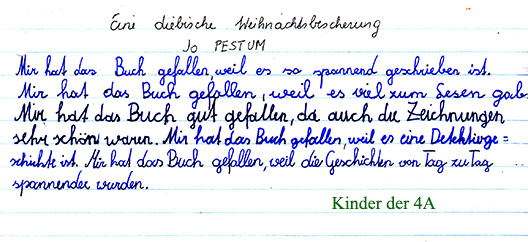 Eine diebische Weihnachtsbescherung
Jo PESTUM
Mir hat das Buch gefallen, weil es so spannend geschrieben ist.
Mir hat das Buch gefallen, weil es viel zum Lesen gab.
Mir hat das Buch gut gefallen, da auch die Zeichnungen
sehr schön waren. Mir hat das Buch gefallen, weil es eine Detektivge=
schichte ist. Mir hat das Buch gefallen, weil die Geschichten von Tag zu Tag
spannender wurden.
Kinder der 4A